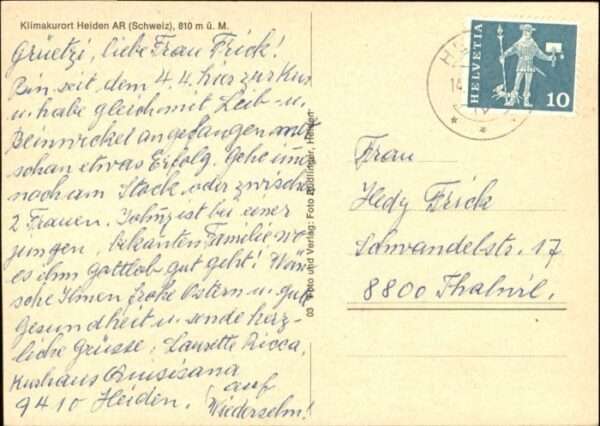 Klimakurort Heiden AR (Schweiz), 810 m ü. M.
Grüetzi, liebe Frau Frick!
Bin seit dem 4.4. hier zur Kur
u. habe gleich mit Leib- u.
Beinwickel angefangen
schon etwas Erfolg. Gehe
noch am Stock oder zwischen
2 Frauen. ist bei einer
jungen, bekannten Familie wo
es ihm gottlob gut geht! Wün-
sche Ihnen frohe Ostern u. gute
Gesundheit u. sende herz-
liche Grüsse, Laurette Ricca,
Kurhaus Quisisana
9410 Heiden. auf
Wiedersehn!
03 Foto und Verlag: Foto Heiden
HELVETIA
10
Frau
Hedy Frick
Schwandelstr. 17
8800 Thalwil.